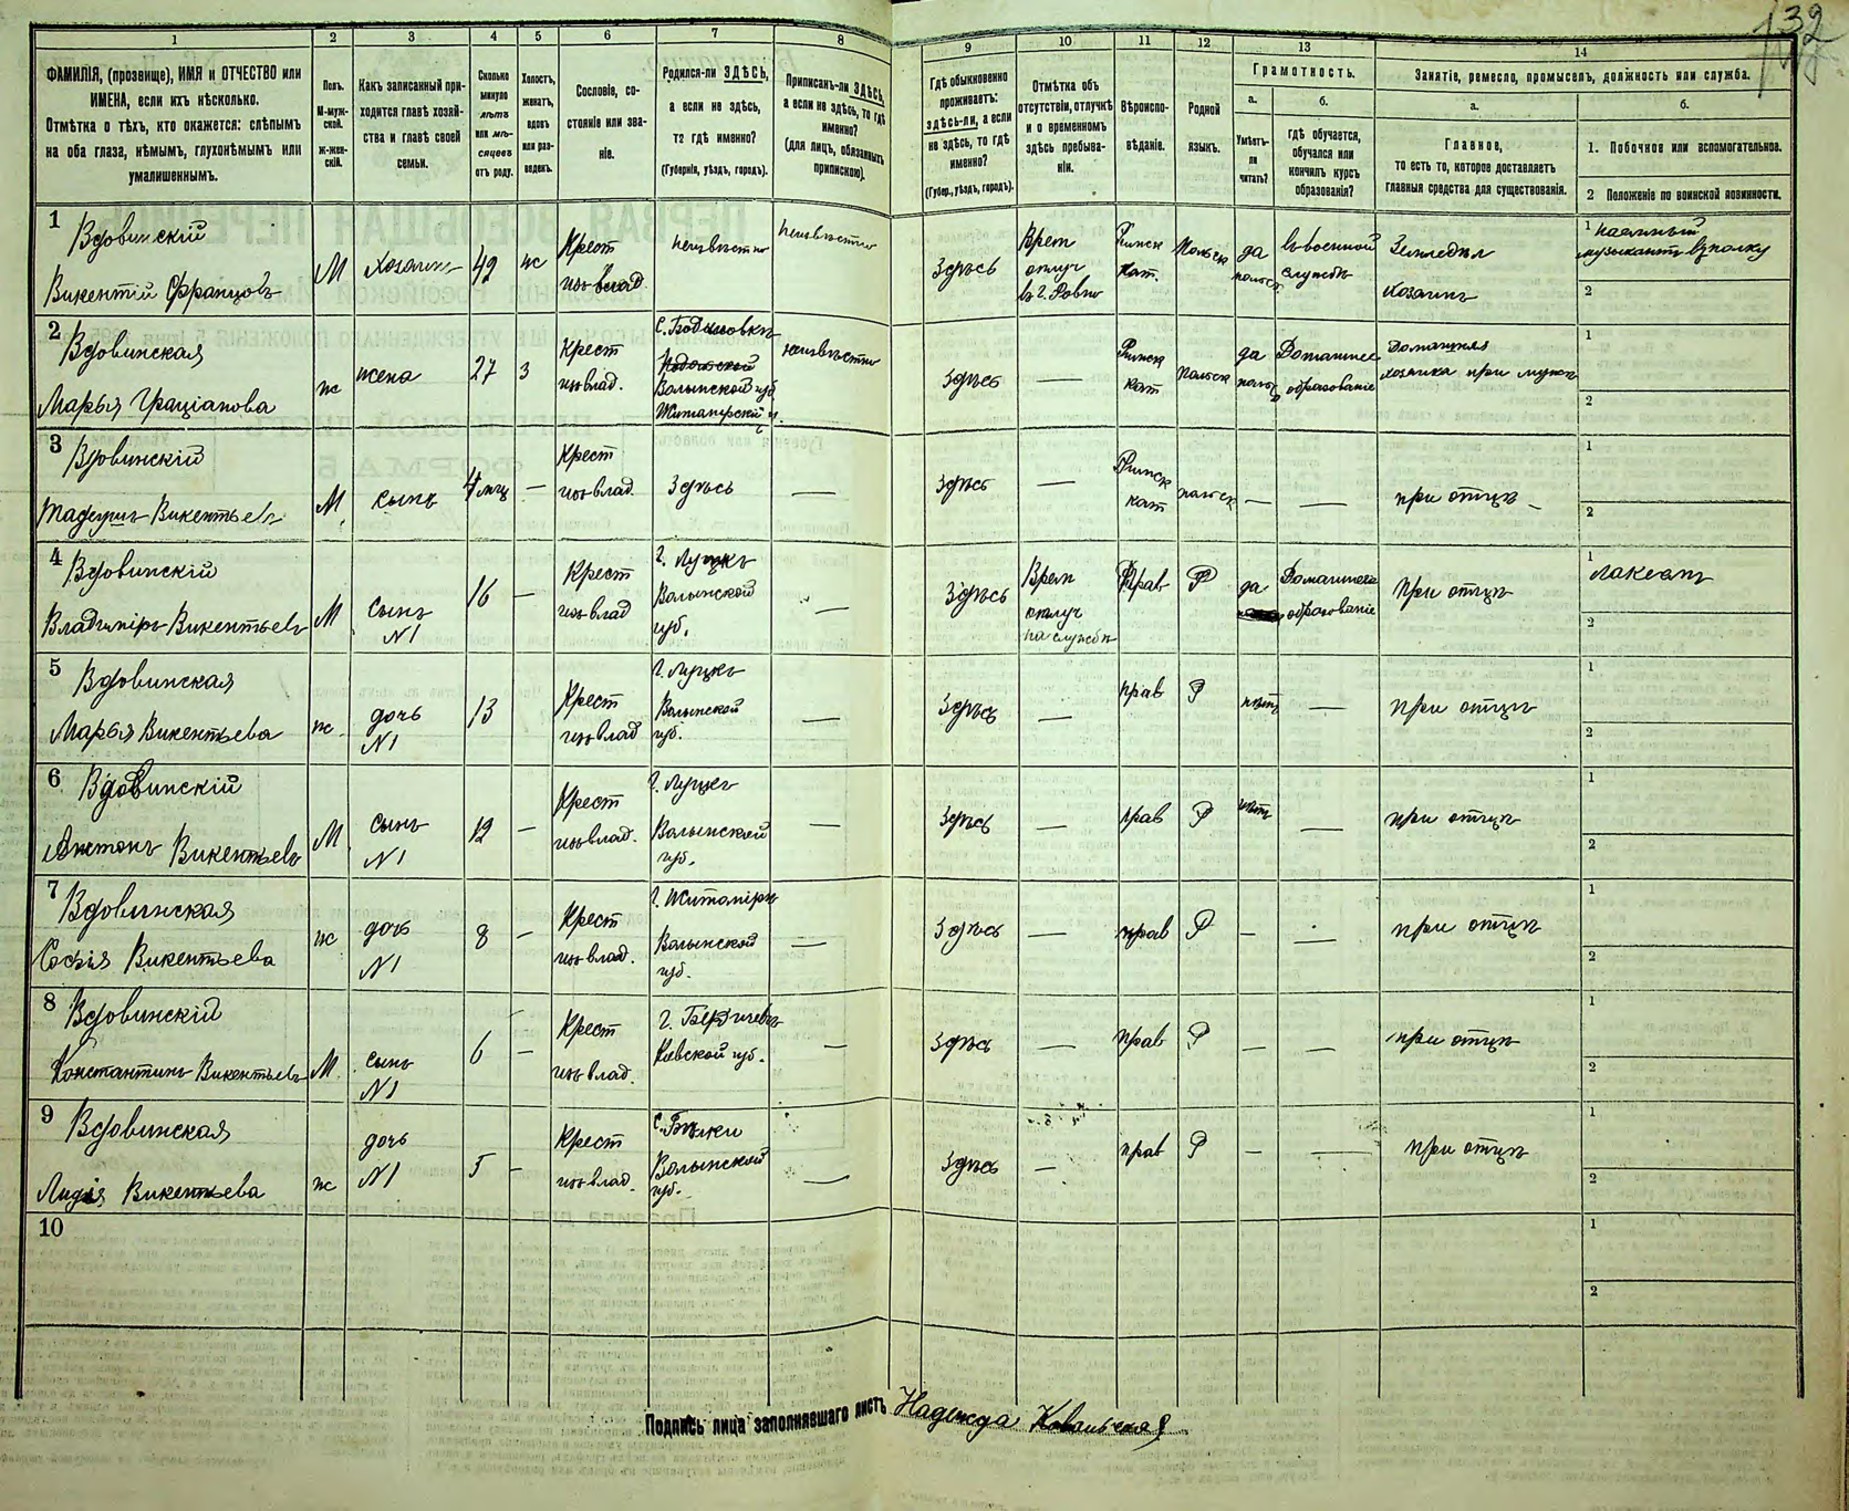 132
1 2 3 4 5 6 7 8 9 10 11 12 13 14
ФАМИЛІЯ, (прозвище), ИМЯ и ОТЧЕСТВО или
ИМЕНА, если ихъ нѣсколько.
Отмѣтка о тѣхъ, кто окажется: слѣпымъ
на оба глаза, нѣмымъ, глухонѣмымъ или
умалишеннымъ.
Полъ.
М-муж-
ской.
Ж-жен-
скій.
Какъ записанный при-
ходится главѣ хозяй-
ства и главѣ своей
семьи.
Сколько
минуло
лѣтъ
или мѣ-
сяцевъ
отъ роду.
Холостъ,
женатъ,
вдовъ
или раз-
веденъ.
Сословіе, со-
стояніе или зва-
ніе.
Родился-ли ЗДѢСЬ,
а если не здѣсь,
то гдѣ именно?
(Губернія, уѣздъ, городъ).
Приписанъ-ли ЗДѢСЬ,
а если не здѣсь, то гдѣ
именно?
(для лицъ, обязанныхъ
припискою).
Гдѣ обыкновенно
проживаетъ:
здѣсь-ли, а если
не здѣсь, то гдѣ
именно?
(Губер., уѣздъ, городъ).
Отмѣтка объ
отсутствіи, отлучкѣ
и о временномъ
здѣсь пребыва-
ніи.
Вѣроиспо-
вѣданіе.
Родной
языкъ.
Грамотность.
а.
Умѣетъ-
ли
читать?
б.
гдѣ обучается,
обучался или
кончилъ курсъ
образованія?
Занятіе, ремесло, промыселъ, должность или служба.
а.
Главное,
то есть то, которое доставляетъ
главныя средства для существованія.
б.
1. Побочное или вспомогательное.
2 Положеніе по воинской повинности.
1 Вдовинскій
Викентій Францовъ
М
Хозяинъ
49
ж
Крест
изъ влад
неизвѣстно
неизвѣстно
Здѣсь
Врем
отлуч
въ г. Ровно
Римск
Кат.
Польск
да
польск
въ военной
службѣ
Земледѣл
Хозяинъ
1 Наемный
музыкантъ въ полку
2
2 Вдовинская
Марья Граціанова
ж
жена
27
З
Крест
изъ влад.
Волынской губ
Житомирскій у.
неизвѣстно
Здѣсь
—
Римск
кат
польск
да
польск
Домашнее
образованіе
Домашняя
хозяйка при мужѣ
1
2
3 Вдовинскій
Тадеушъ Викентьевъ
М
сынъ
4 мѣц
—
Крест
изъ влад.
Здѣсь
—
Здѣсь
—
Римск
кат
польск
—
—
при отцѣ
1
2
4 Вдовинскій
Владиміръ Викентьевъ
М
сынъ
№1
16
—
Крест
изъ влад
г. Луцкъ
Волынской
губ.
—
Здѣсь
Врем
отлуч
на службѣ
Прав
Р
да
Домашнее
образованіе
При отцѣ
1
лакеемъ
2
5 Вдовинская
Марья Викентьева
ж
дочь
№1
13
Крест
изъ влад
г. Луцкъ
Волынской
губ.
—
Здѣсь
—
прав
Р
нѣтъ
—
при отцѣ
1
2
6 Вдовинскій
Антонъ Викентьевъ
М
сынъ
№1
12
—
Крест
изъ влад.
г. Луцкъ
Волынской
губ.
—
Здѣсь
—
прав
Р
нѣтъ
—
при отцѣ
1
2
7 Вдовинская
Софія Викентьева
ж
дочь
№1
8
—
Крест
изъ влад.
г. Житомиръ
Волынской
губ.
—
Здѣсь
—
прав
Р
—
—
при отцѣ
1
2
8 Вдовинскій
Константинъ Викентьевъ
М
сынъ
№1
6
—
Крест
изъ влад.
г. Бердичевъ
Кіевской губ.
—
Здѣсь
—
прав
Р
—
—
при отцѣ
1
2
9 Вдовинская
Лидія Викентьева
ж
дочь
№1
5
—
Крест
изъ влад.
Волынской
губ.
—
Здѣсь
—
прав
Р
—
—
при отцѣ
1
2
10
1
2
Подпись лица заполнявшаго листъ Надежда Ковальская